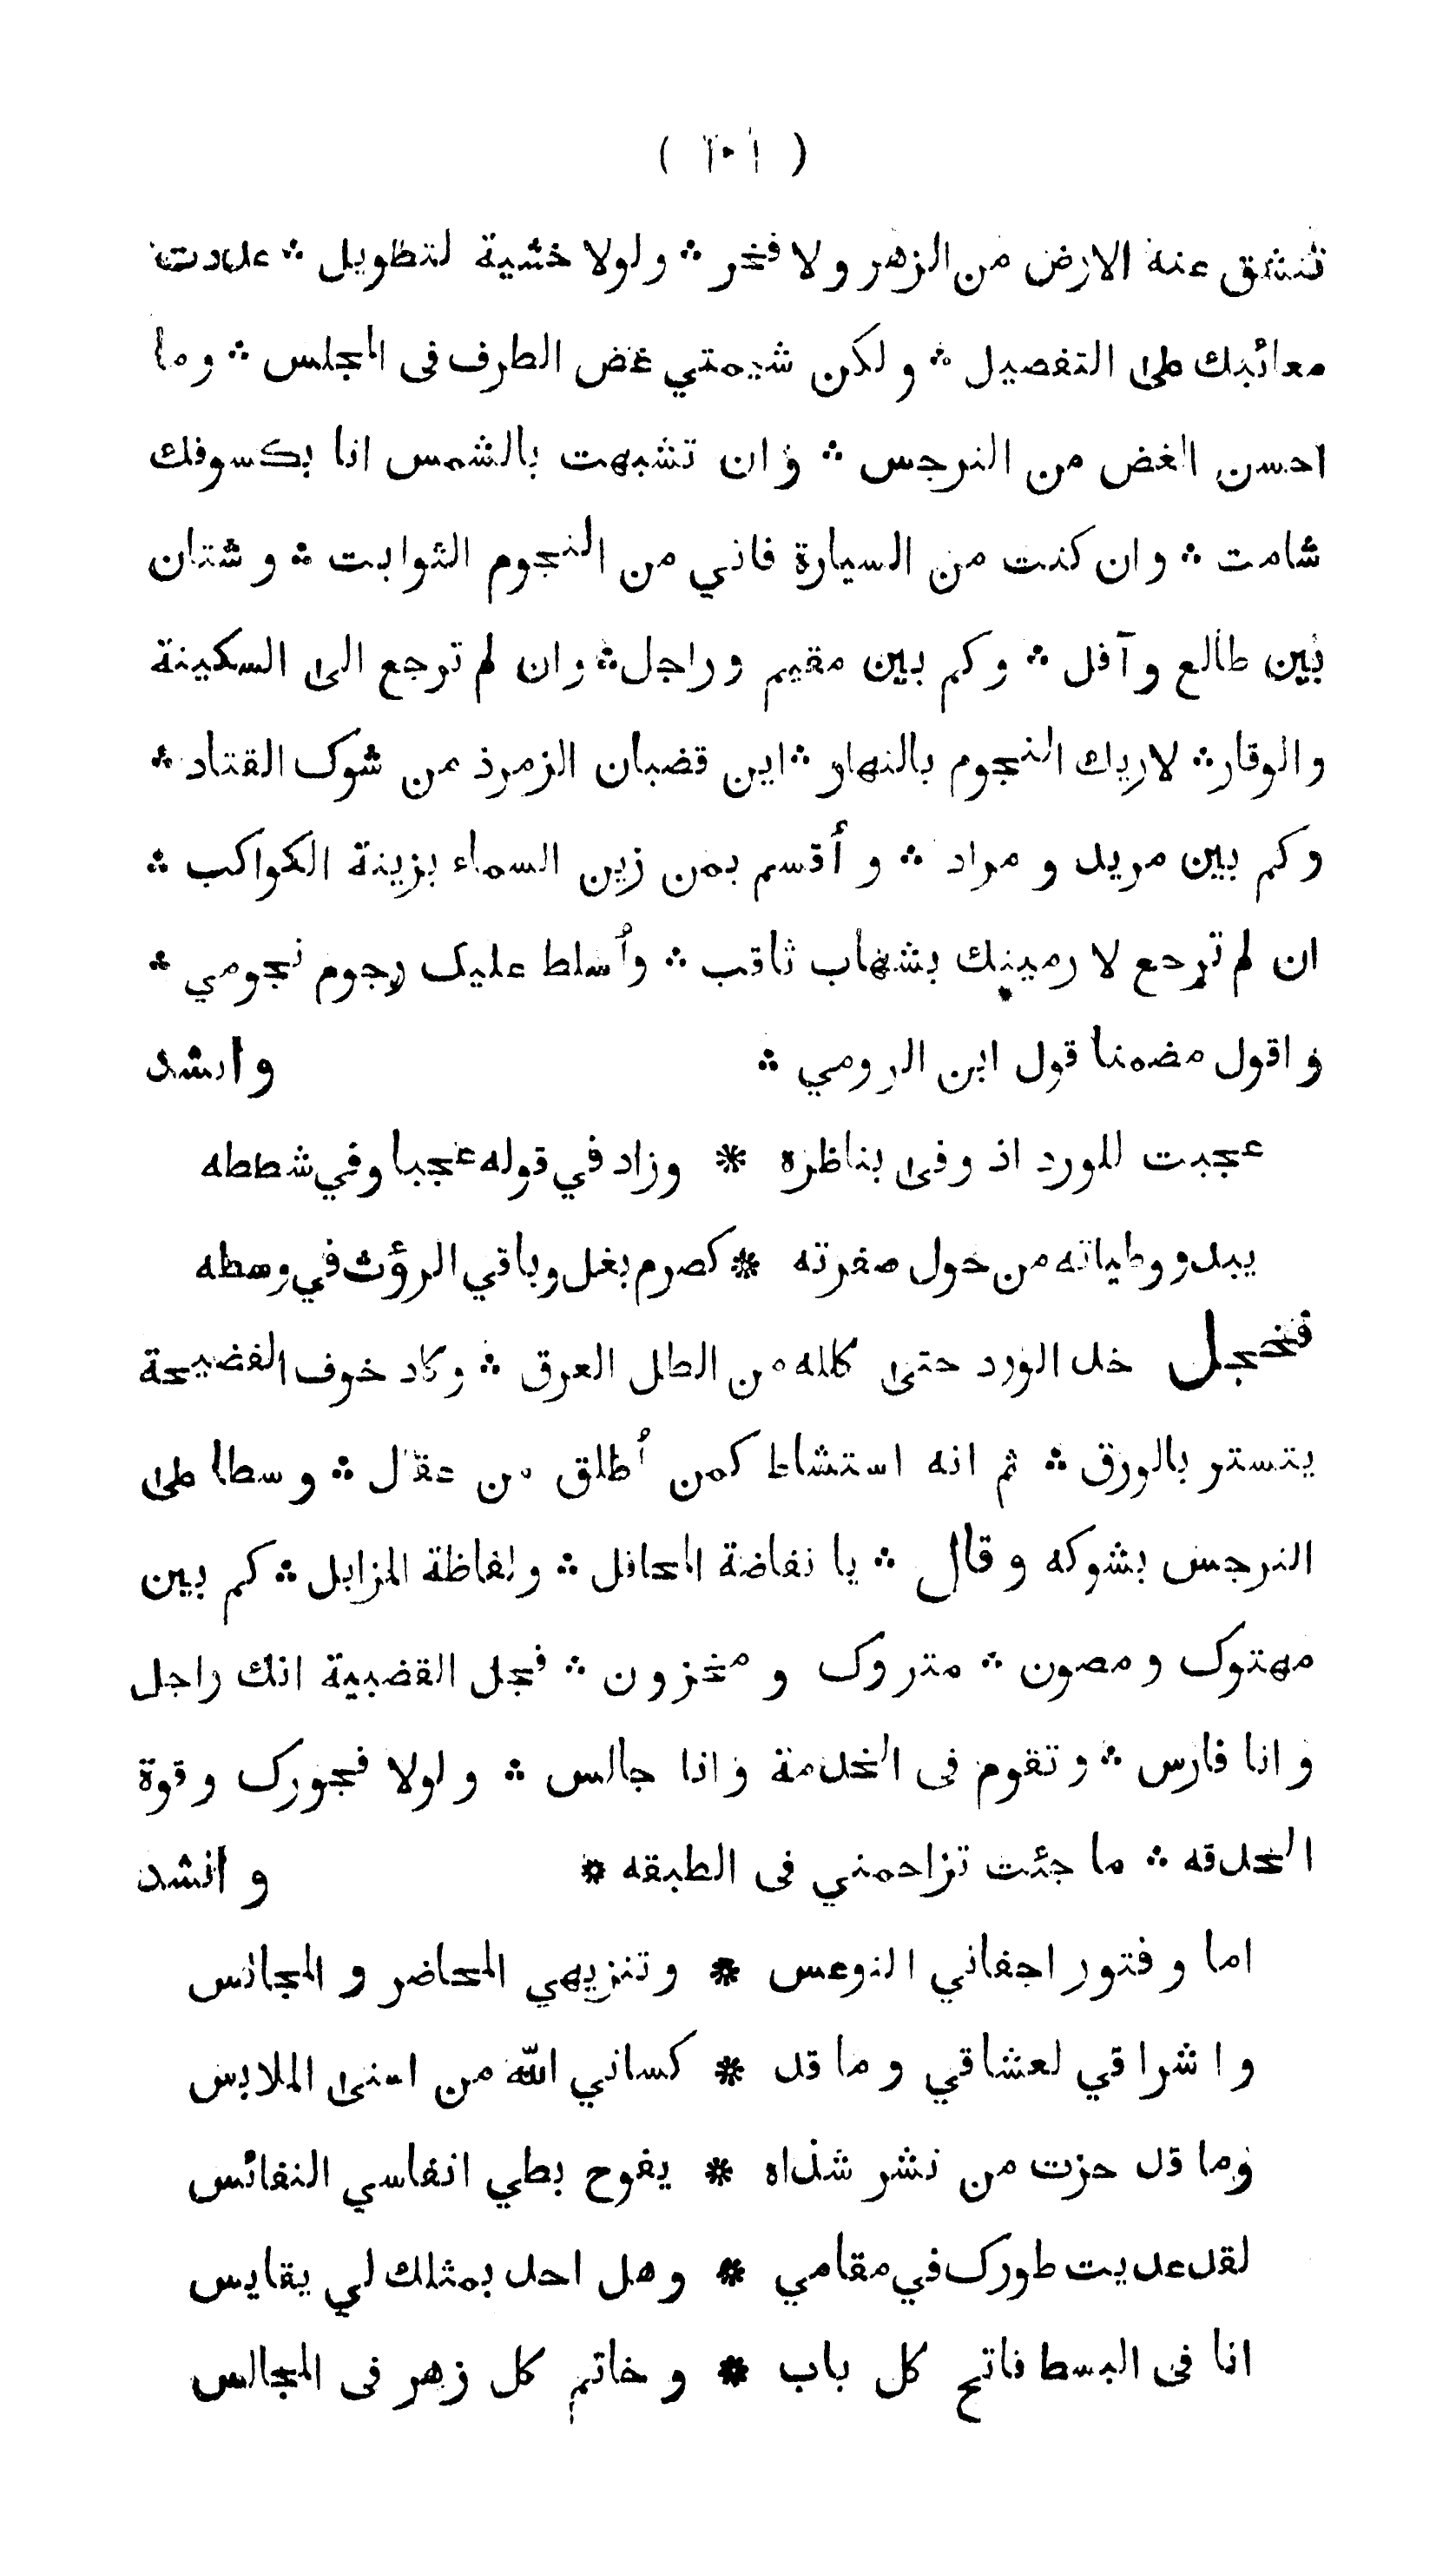 تنشق عنه الارض من الزهر ولا فخر ∴ ولولا خشية لتطويل ∴ عددت
معائبك على التفصيل ∴ ولكن شيمتي غض الطرف فى المجلس ∴ وما
احسن الغض من النرجس ∴ وان تشبهت بالشمس انا بكسوفك
شامت ∴ وان كنت من السيارة فاني من النجوم الثوابت ∴ وشتان
بين طالع وآفل ∴ وكم بين مقيم وراحل ∴ وان لم ترجع الى السكينة
والوقار ∴ لاريك النجوم بالنهار ∴ اين قضبان الزمرذ من شوك القتاد ∴
وكم بين مريد و مراد ∴ و أقسم بمن زين السماء بزينة الكواكب ∴
ان لم ترجع لا رمينك بشهاب ثاقب ∴ وأسلط عليك رجوم نجومي ∴
واقول مضمنا قول ابن الرومي ∴ وانشد
عجبت للورد اذ وفى بناظره * وزاد في قوله عجبا وفي شططه
يبدو وطياته من حول صفرته * كصرم بغل وباقي الروث في وسطه
فخجل خد الورد حتى كلله من الطل العرق ∴ وكاد خوف الفضيحة
يتستر بالورق ∴ ثم انه استشاط كمن أطلق من عقال ∴ وسطا على
النرجس بشوكه وقال ∴ يا نفاضة المحافل ∴ ولفاظة المزابل ∴ كم بين
مهتوك ومصون ∴ متروك و مخزون ∴ فجل القضبية انك راجل
وانا فارس ∴ وتقوم فى الخدمة وانا جالس ∴ ولولا فجورك وقوة
الحدقه ∴ ما جئت تزاحمني فى الطبقه * وانشد
اما وفتور اجفاني النوعس * وتنزيهي المحاضر و المجانس
واشراقي لعشاقي وما قد * كساني الله من اسنى الملابس
وما قد حزت من نشر شذاه * يفوح بطي انفاسي النفائس
لقد عديت طورك في مقامي * وهل احد بمثلك لي يقايس
انا فى البسط فاتح كل باب * وخاتم كل زهر فى المجالس